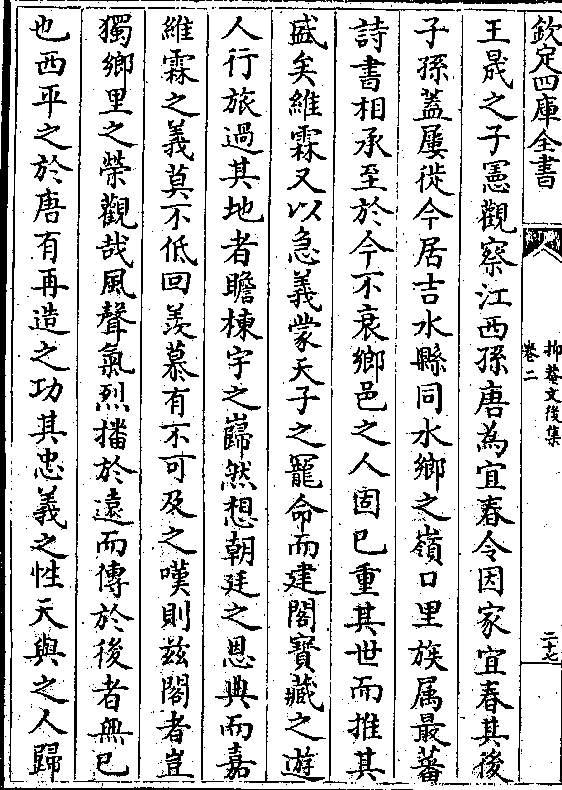 欽定四庫全書
抑菴文後集
卷二
二十七
王晟之子憲觀察江西孫唐為宜春令因家宜春其後
子孫蓋屢徙今居吉水縣同水鄉之嶺口里族属最蕃
詩書相承至於今不衰鄉邑之人固已重其世而推其
盛矣維霖又以急義蒙天子之寵命而建閣寶藏之遊
人行旅過其地者瞻棟宇之巋然想朝廷之恩典而嘉
維霖之義莫不低回羨慕有不可及之嘆則兹閣者豈
獨鄉里之榮觀哉風聲氣烈播於遠而傳於後者無已
也西平之於唐有再造之功其忠義之性天與之人歸